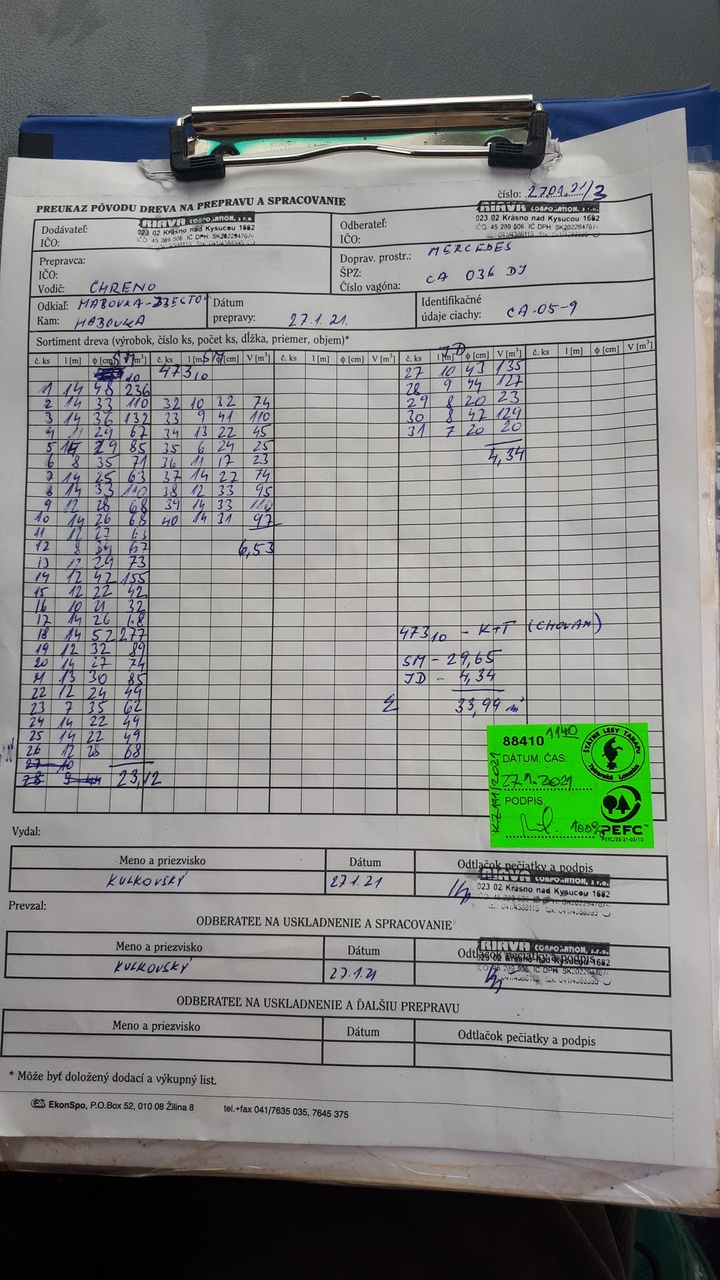 číslo: 27.01.21/3
PREUKAZ PÔVODU DREVA NA PREPRAVU A SPRACOVANIE
Dodávateľ:
IČO:
RIAVA CORPORATION, s.r.o.
023 02 Krásno nad Kysucou 1682
Odberateľ:
IČO:
RIAVA CORPORATION, s.r.o.
023 02 Krásno nad Kysucou 1682
Prepravca:
IČO:
Vodič: CHRENO
Doprav. prostr.: MERCEDES
ŠPZ: CA 036 DJ
Číslo vagóna:
Odkiaľ:
Kam: HABOVKA
Dátum
prepravy: 27.1.21.
Identifikačné
údaje ciachy: CA-05-9
Sortiment dreva (výrobok, číslo ks, počet ks, dĺžka, priemer, objem)*
č. ks l [m] φ [cm] V [m³] č. ks l [m] φ [cm] V [m³] č. ks l [m] φ [cm] V [m³] č. ks l [m] φ [cm] V [m³] č. ks l [m] φ [cm] V [m³]
473 10
1 14 48 236
2 14 33 110
3 14 36 132
4 11 29 67
5 14 29 85
6 8 35 71
7 14 25 63
8 14 33 110
9 12 28 68
10 14 26 68
11 12 27 63
12 8 34 67
13 12 29 73
14 12 42 155
15 12 22 42
16 10 21 32
17 14 26 68
18 14 52 277
19 12 32 89
20 14 27 74
21 13 30 85
22 12 24 49
23 7 35 62
24 14 22 49
25 14 22 49
26 12 28 68
27 10
28 9 44 23,12
32 10 32 74
33 9 41 110
34 13 22 45
35 6 24 25
36 11 17 23
37 14 27 74
38 12 33 95
39 14 33 110
40 14 31 97
6,53
JD
27 10 43 135
28 9 44 127
29 8 20 23
30 8 47 129
31 7 20 20
4,34
473 10 - K+T (CHOVAN)
SM - 29,65
JD - 4,34
Σ 33,99 m³
88410 1140
DÁTUM: ČAS:
27.1.2021
PODPIS
100%
ŠTÁTNE LESY TANAPU
Tatranská Lomnica
PEFC
Vydal:
Meno a priezvisko Dátum Odtlačok pečiatky a podpis
KULKOVSKÝ 27.1.21
RIAVA CORPORATION, s.r.o.
023 02 Krásno nad Kysucou 1682
Prevzal:
ODBERATEĽ NA USKLADNENIE A SPRACOVANIE
Meno a priezvisko Dátum Odtlačok pečiatky a podpis
KULKOVSKÝ 27.1.21
RIAVA CORPORATION, s.r.o.
023 02 Krásno nad Kysucou 1682
ODBERATEĽ NA USKLADNENIE A ĎALŠIU PREPRAVU
Meno a priezvisko Dátum Odtlačok pečiatky a podpis
* Môže byť doložený dodací a výkupný list.
EkonSpo, P.O.Box 52, 010 08 Žilina 8 tel.+fax 041/7635 035, 7645 375